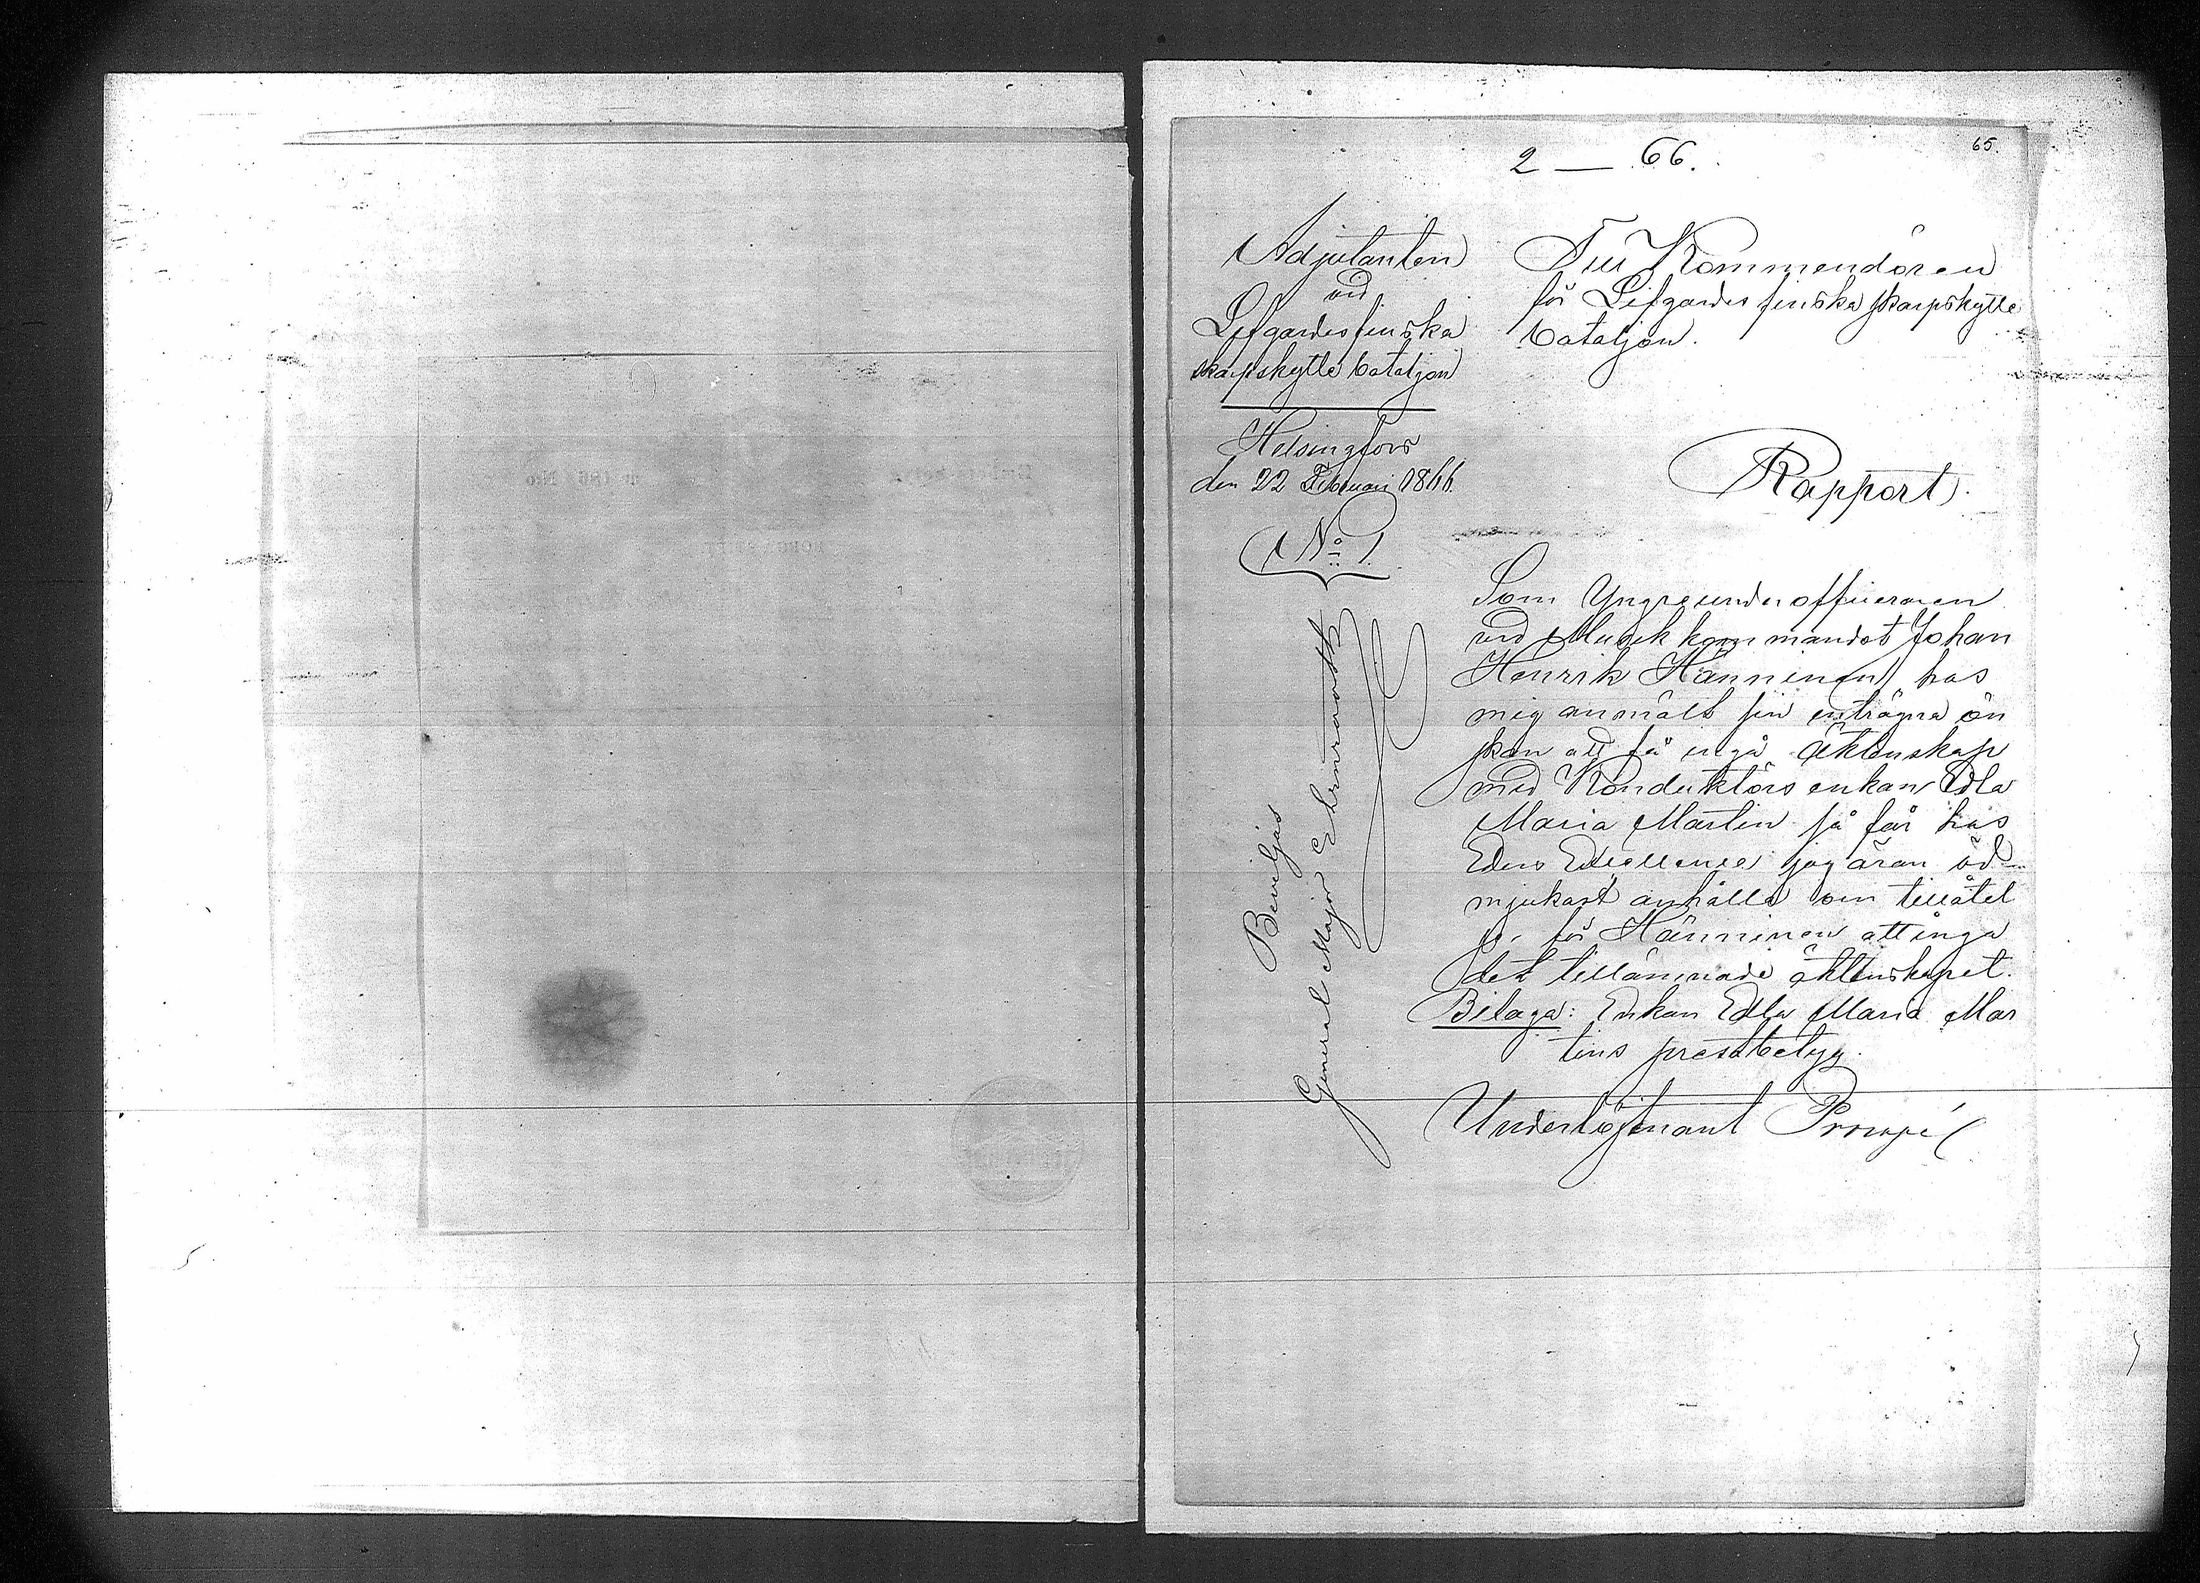 65.
2 — 66.
Adjutanten
vid
Lifgardes finska
skarpskytte bataljon
Helsingfors
den 22 Februari 1866.
No 1.
Till Kommendören
för Lifgardes finska skarpskytte
bataljon.
Rapport.
Som Yngre underofficeraren
vid Musikkommandot Johan
Henrik Hänninen hos
mig anmält sin enträgna ön
skan att få ingå äktenskap
med Konduktörs enkan Edla
Maria Martin så får hos
Eders Excellence jag äran öd-
mjukast anhålla om tillåtel
se för Hänninen att ingå
det tillämnade äktenskapet.
Bilaga: Enkan Edla Maria Mar
tins prestbetyg.
Underlöjtnant
Beviljas
General Major Ehrnrooth